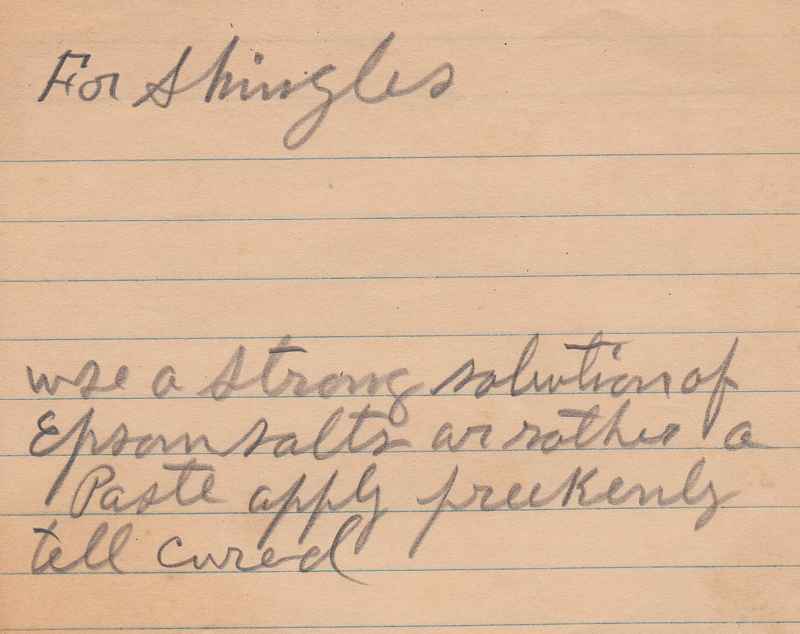 For Shingles
use a strong solution of
Epsom salts or rather a
Paste apply freekenly
tell cured